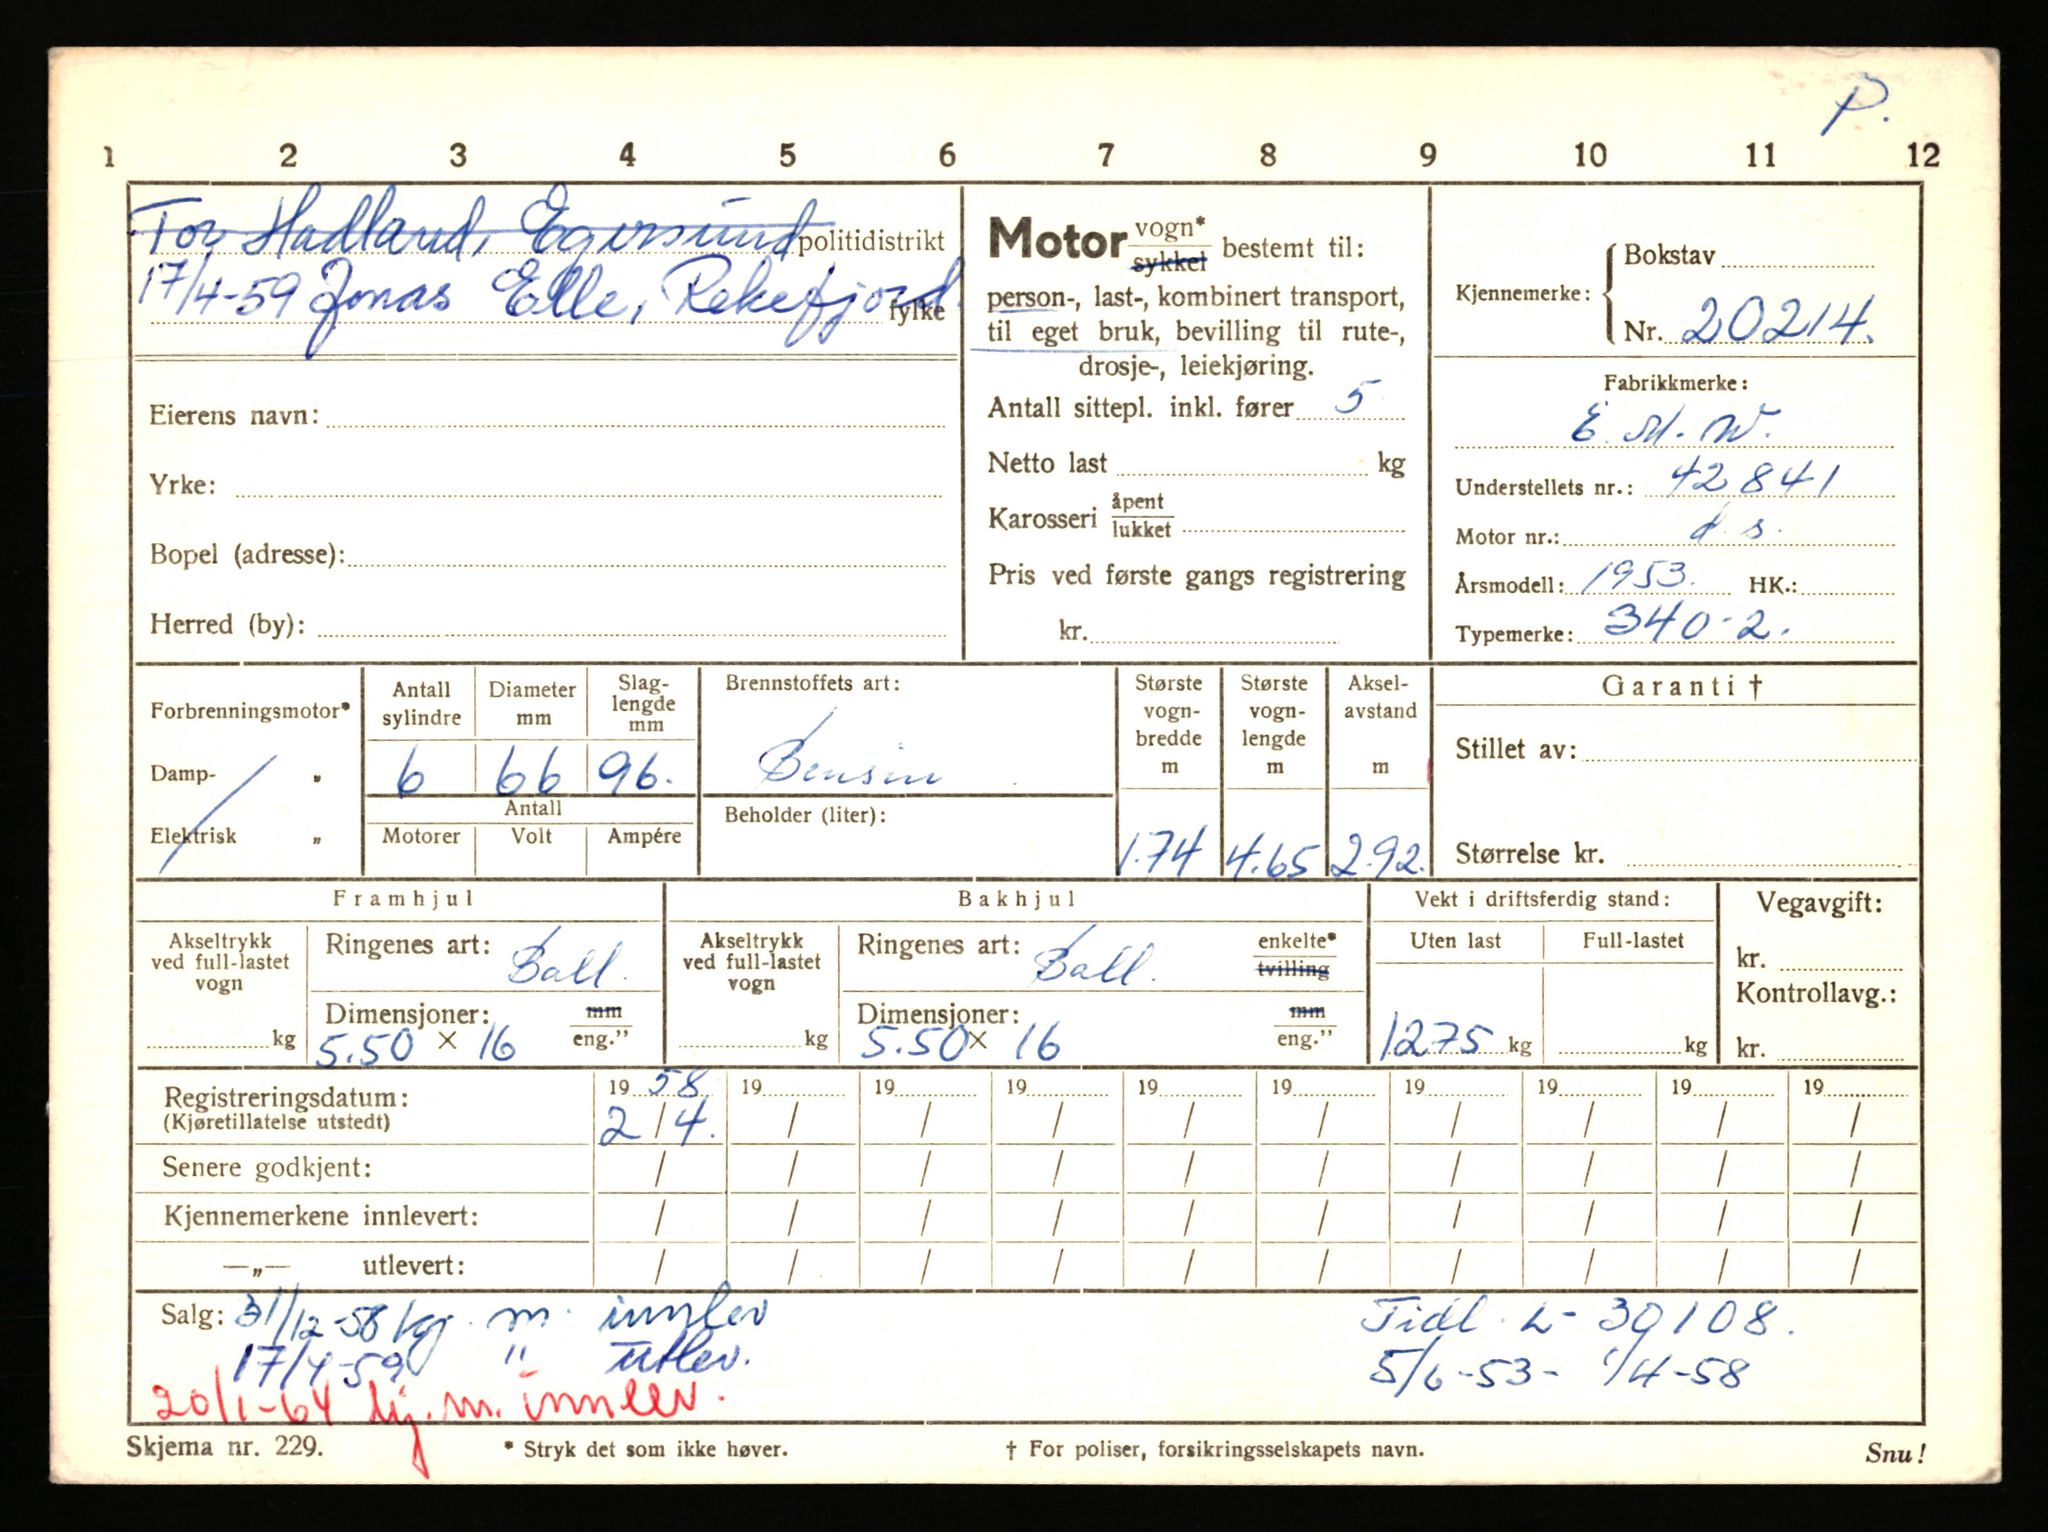 P.
1 2 3 4 5 6 7 8 9 10 11 12
Tor Hadland, Egersund politidistrikt
17/4-59 Jonas Elle, Rekefjord. fylke
Eierens navn:
Yrke:
Bopel (adresse):
Herred (by):
Motor vogn* sykkel bestemt til:
person-, last-, kombinert transport,
til eget bruk, bevilling til rute-,
drosje-, leiekjøring.
Antall sittepl. inkl. fører 5
Netto last kg
Karosseri åpent lukket
Pris ved første gangs registrering
kr.
Kjennemerke: Bokstav
Nr. 20214.
Fabrikkmerke:
E. M. W.
Understellets nr.: 42841
Motor nr.: d. s.
Årsmodell: 1953. HK.:
Typemerke: 340-2.
Forbrenningsmotor*
Damp- „
Elektrisk „
Antall sylindre
6
Diameter mm
66
Slag-
lengde
mm
96.
Antall
Motorer Volt Ampére
Brennstoffets art:
Bensin
Beholder (liter):
Største
vogn-
bredde
m
1.74
Største
vogn-
lengde
m
4.65
Aksel-
avstand
m
2.92.
Garanti †
Stillet av:
Størrelse kr.
Framhjul
Akseltrykk
ved full-lastet
vogn
kg
Ringenes art: Ball.
Dimensjoner: mm
5.50 × 16 eng.”
Bakhjul
Akseltrykk
ved full-lastet
vogn
kg
Ringenes art: Ball. enkelte* tvilling
Dimensjoner: mm
5.50 × 16 eng.”
Vekt i driftsferdig stand:
Uten last Full-lastet
1275 kg kg
Vegavgift:
kr.
Kontrollavg.:
kr.
Registreringsdatum: 19 58 19 19 19 19 19 19 19 19 19
(Kjøretillatelse utstedt) 2/4. / / / / / / / / /
Senere godkjent: / / / / / / / / / /
Kjennemerkene innlevert: / / / / / / / / / /
—„— utlevert: / / / / / / / / / /
Salg: 31/12-58 kj. m. innlev
17/4-59 " utlev.
20/1-64 kj. m. innlev.
Tidl. L- 30108.
5/6-53- 1/4-58
Skjema nr. 229. * Stryk det som ikke høver. † For poliser, forsikringsselskapets navn. Snu!